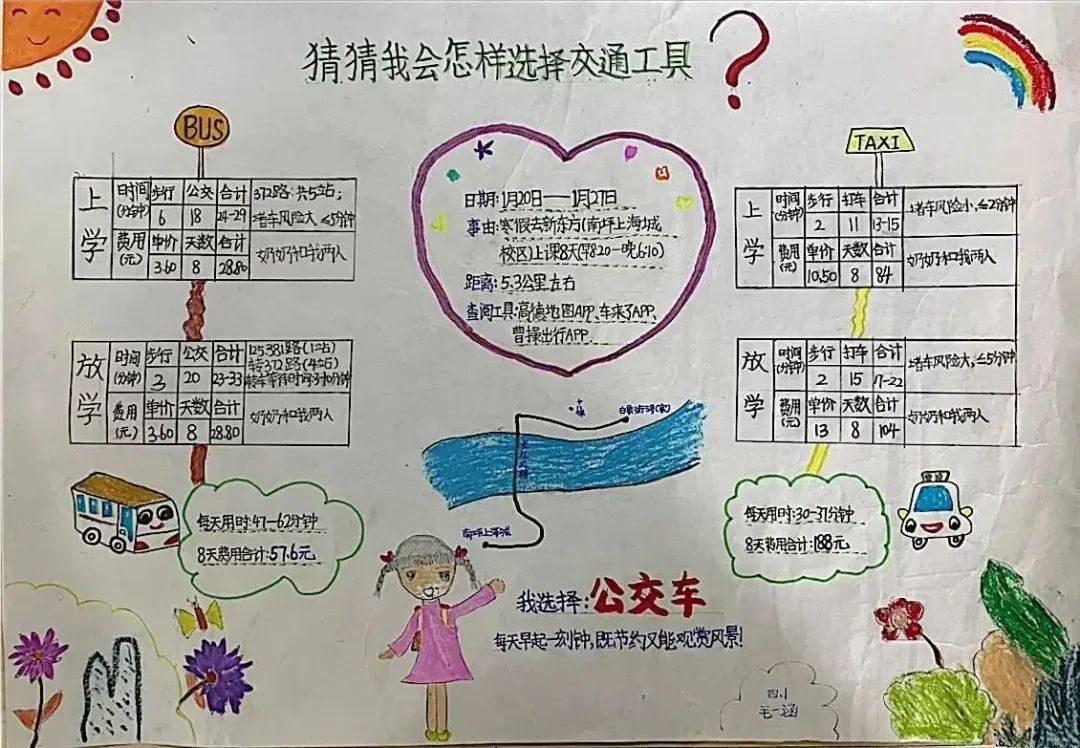 猜猜我会怎样选择交通工具?
BUS
上学
时间(分钟) 步行 公交 合计 372路:共5站;
6 18 24-29 堵车风险大, ≤5分钟
费用(元) 单价 天数 合计 奶奶和我两人
3.60 8 28.80
放学
时间(分钟) 步行 公交 合计 125.381路(1站)
转372路(4站)
3 20 23-33 转车等待时间:3-10分钟
费用(元) 单价 天数 合计 奶奶和我两人
3.60 8 28.80
每天用时:47-62分钟
8天费用合计:57.6元
日期:1月20日——1月27日
事由:寒假去新东方(南坪上海城
校区)上课8天(早8:20-晚6:10)
距离:5.3公里左右
查阅工具:高德地图APP、车来了APP、
曹操出行APP.
白象街
南坪上海城
TAXI
上学
时间(分钟) 步行 打车 合计 堵车风险小, ≤2分钟
2 11 13-15
费用(元) 单价 天数 合计 奶奶和我两人
10.50 8 84
放学
时间(分钟) 步行 打车 合计 堵车风险大, ≤5分钟
2 15 17-22
费用(元) 单价 天数 合计 奶奶和我两人
13 8 104
每天用时:30-37分钟
8天费用合计:188元
我选择:公交车
每天早起一刻钟,既节约又能观赏风景!
四.1
毛一涵